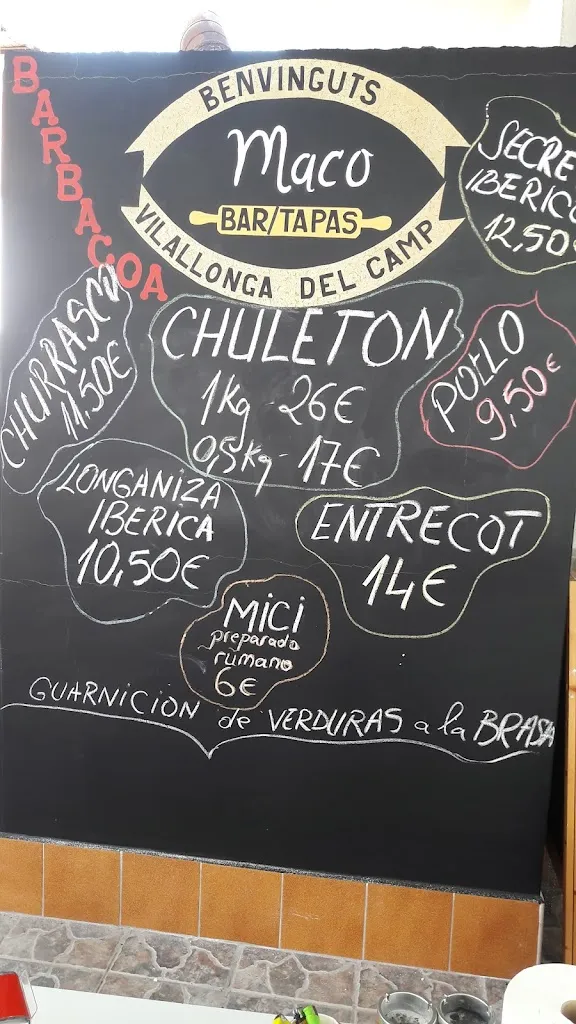 BARBACOA
BENVINGUTS
Maco
BAR/TAPAS
VILALLONGA DEL CAMP
IBERICO
12,50
CHURRASCO
11,50€
CHULETON
1Kg - 26€
0,5Kg - 17€
POLLO
9,50€
LONGANIZA
IBERICA
10,50€
ENTRECOT
14€
MICI
preparado
rumano
6€
GUARNICION de VERDURAS a la BRASA